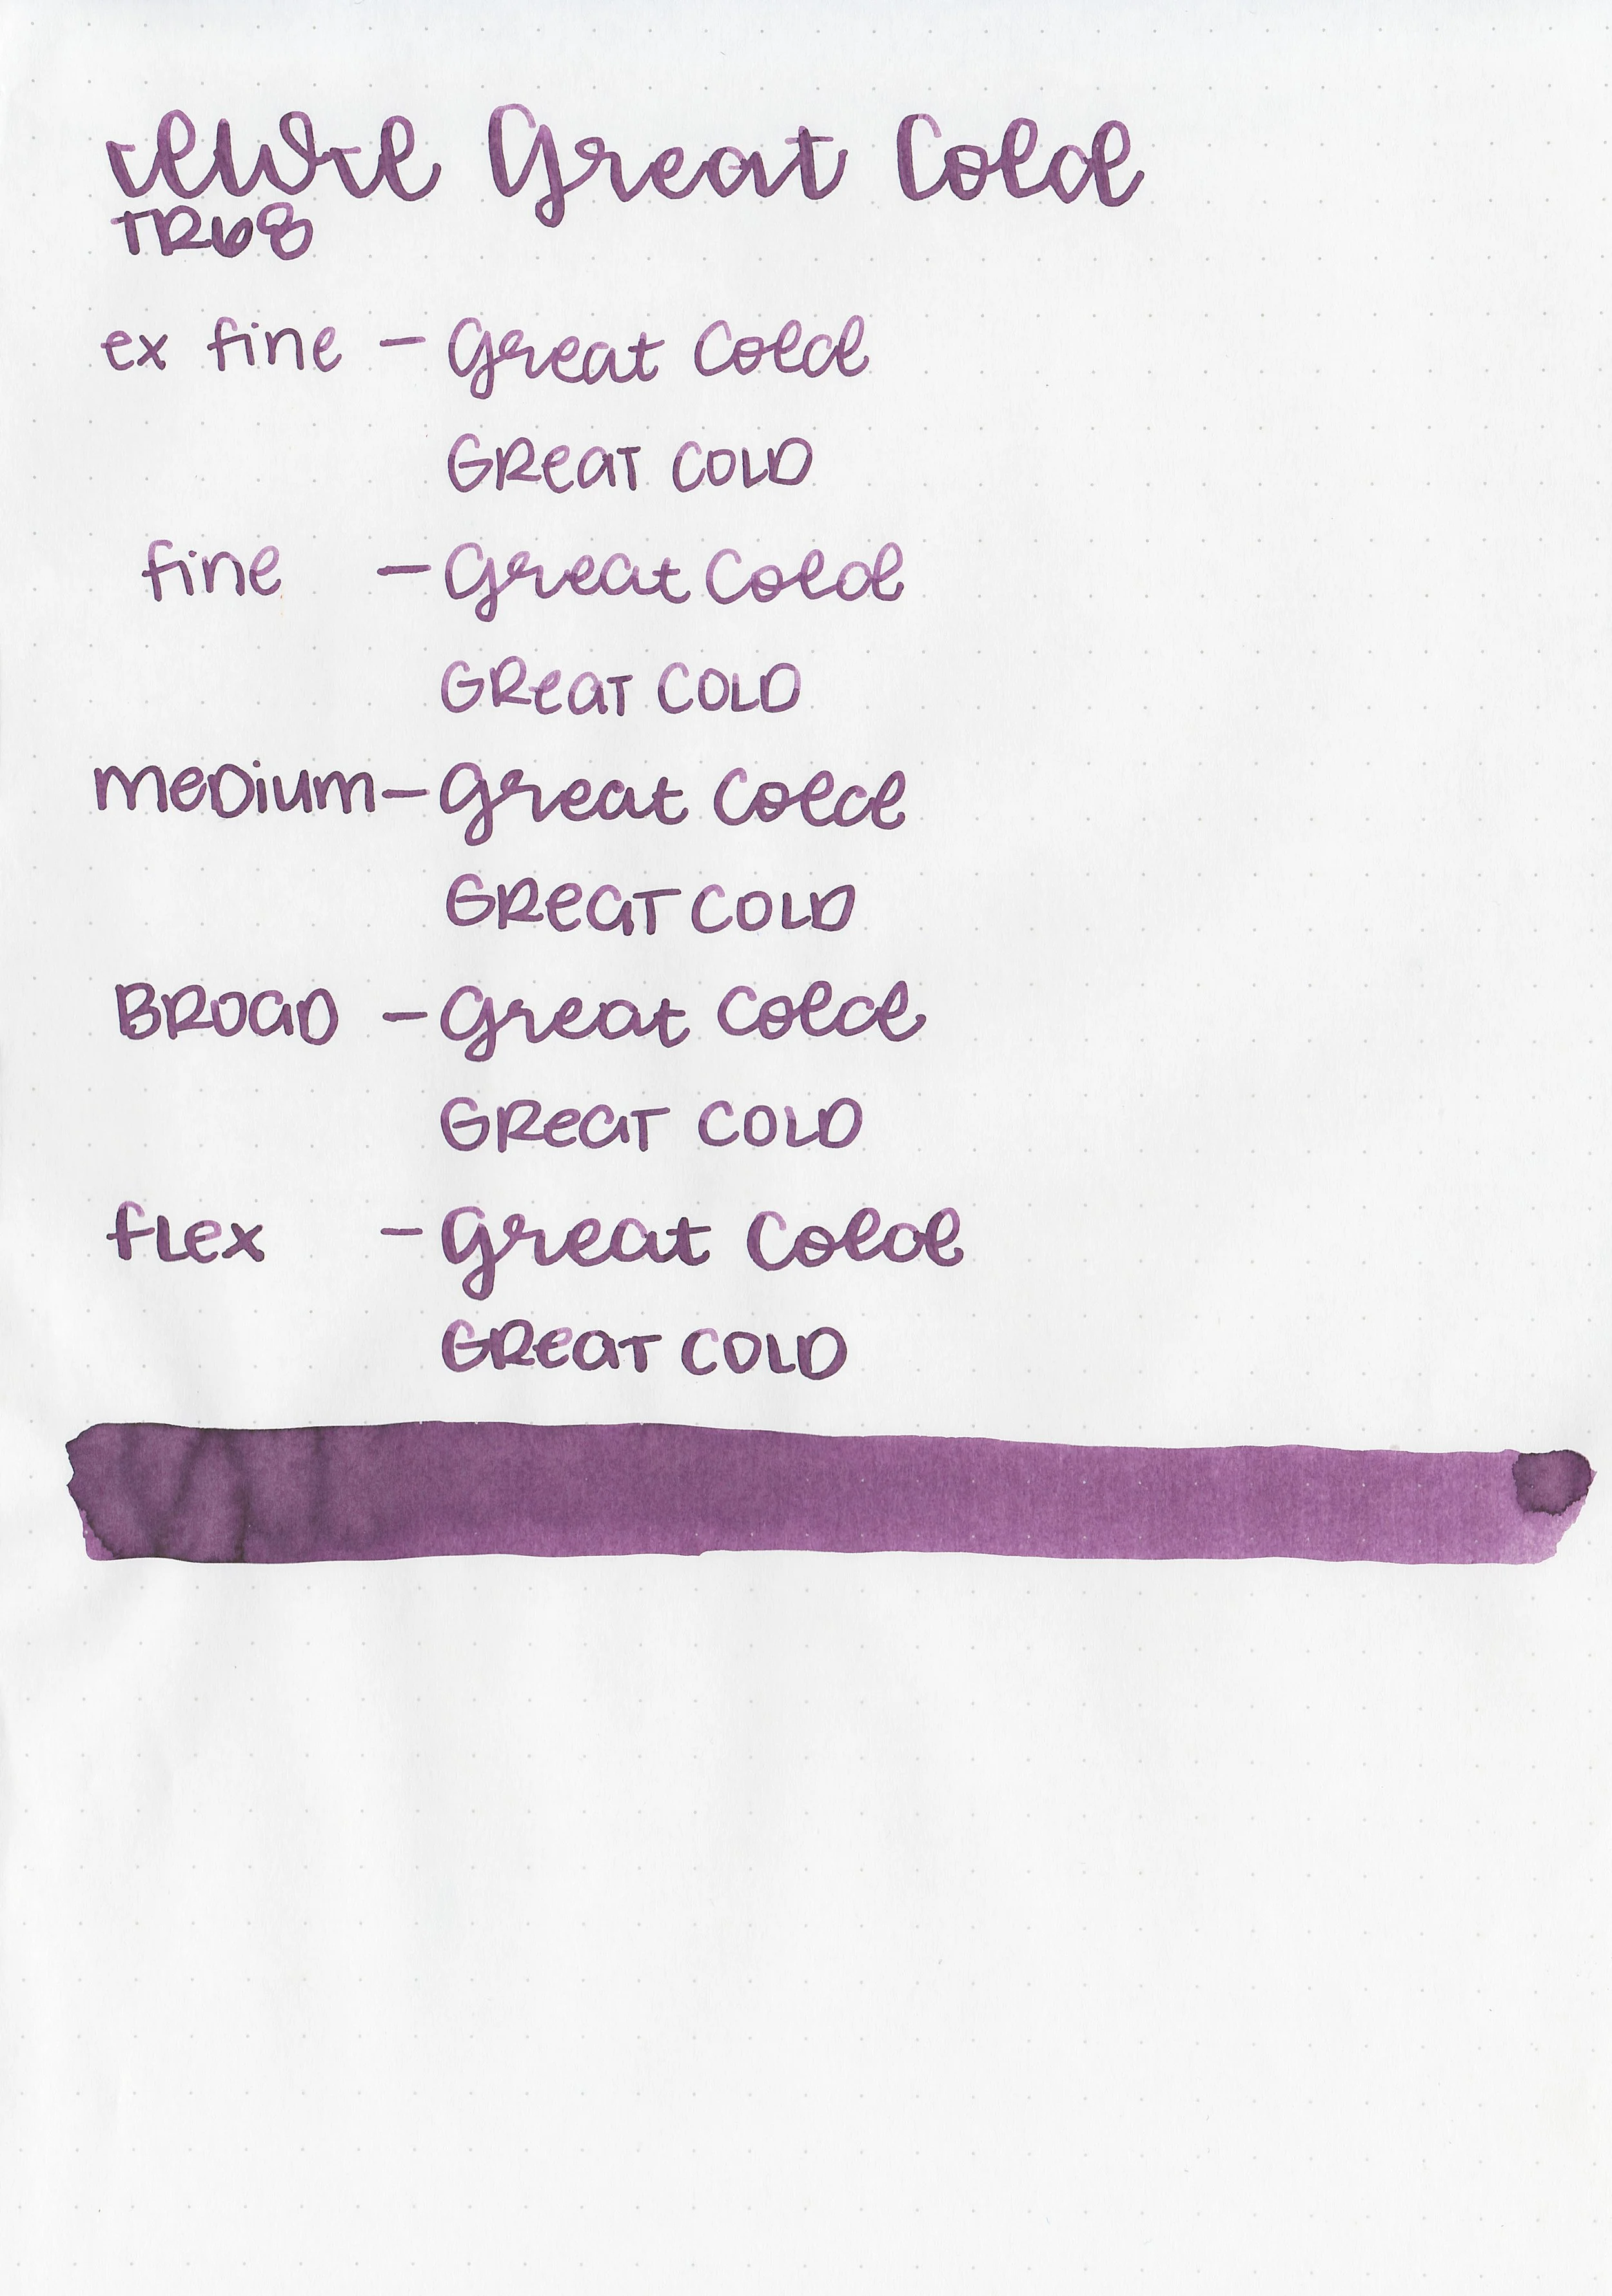 Great Cold
TR68
ex fine - Great Cold
GReaT COLD
fine - Great Cold
GReaT COLD
meDium - Great Cold
GReaT COLD
BROaD - Great Cold
GReaT COLD
fLex - Great Cold
GReaT COLD